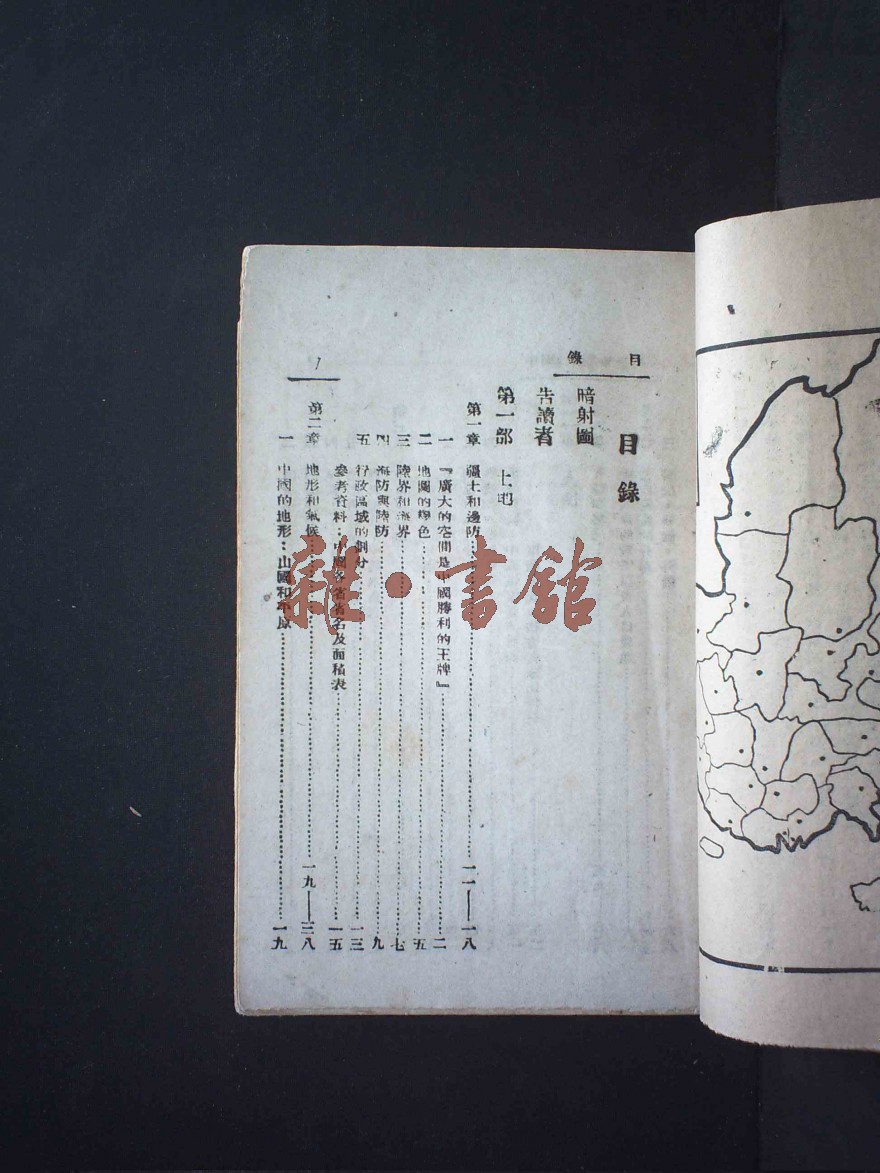 目錄
目錄
暗射圖
告讀者
第一部 土地
第一章 疆土和邊防……一一—一八
一 『廣大的空間是中國勝利的王牌』……二
二 地圖的變色……五
三 陸界和海界……七
四 海防與陸防……九
五 行政區域的劃分……一三
參考資料：中國各省省名及面積表……一五
第二章 地形和氣候……一九—三八
一 中國的地形：山國和平原……一九
1
雜·書館